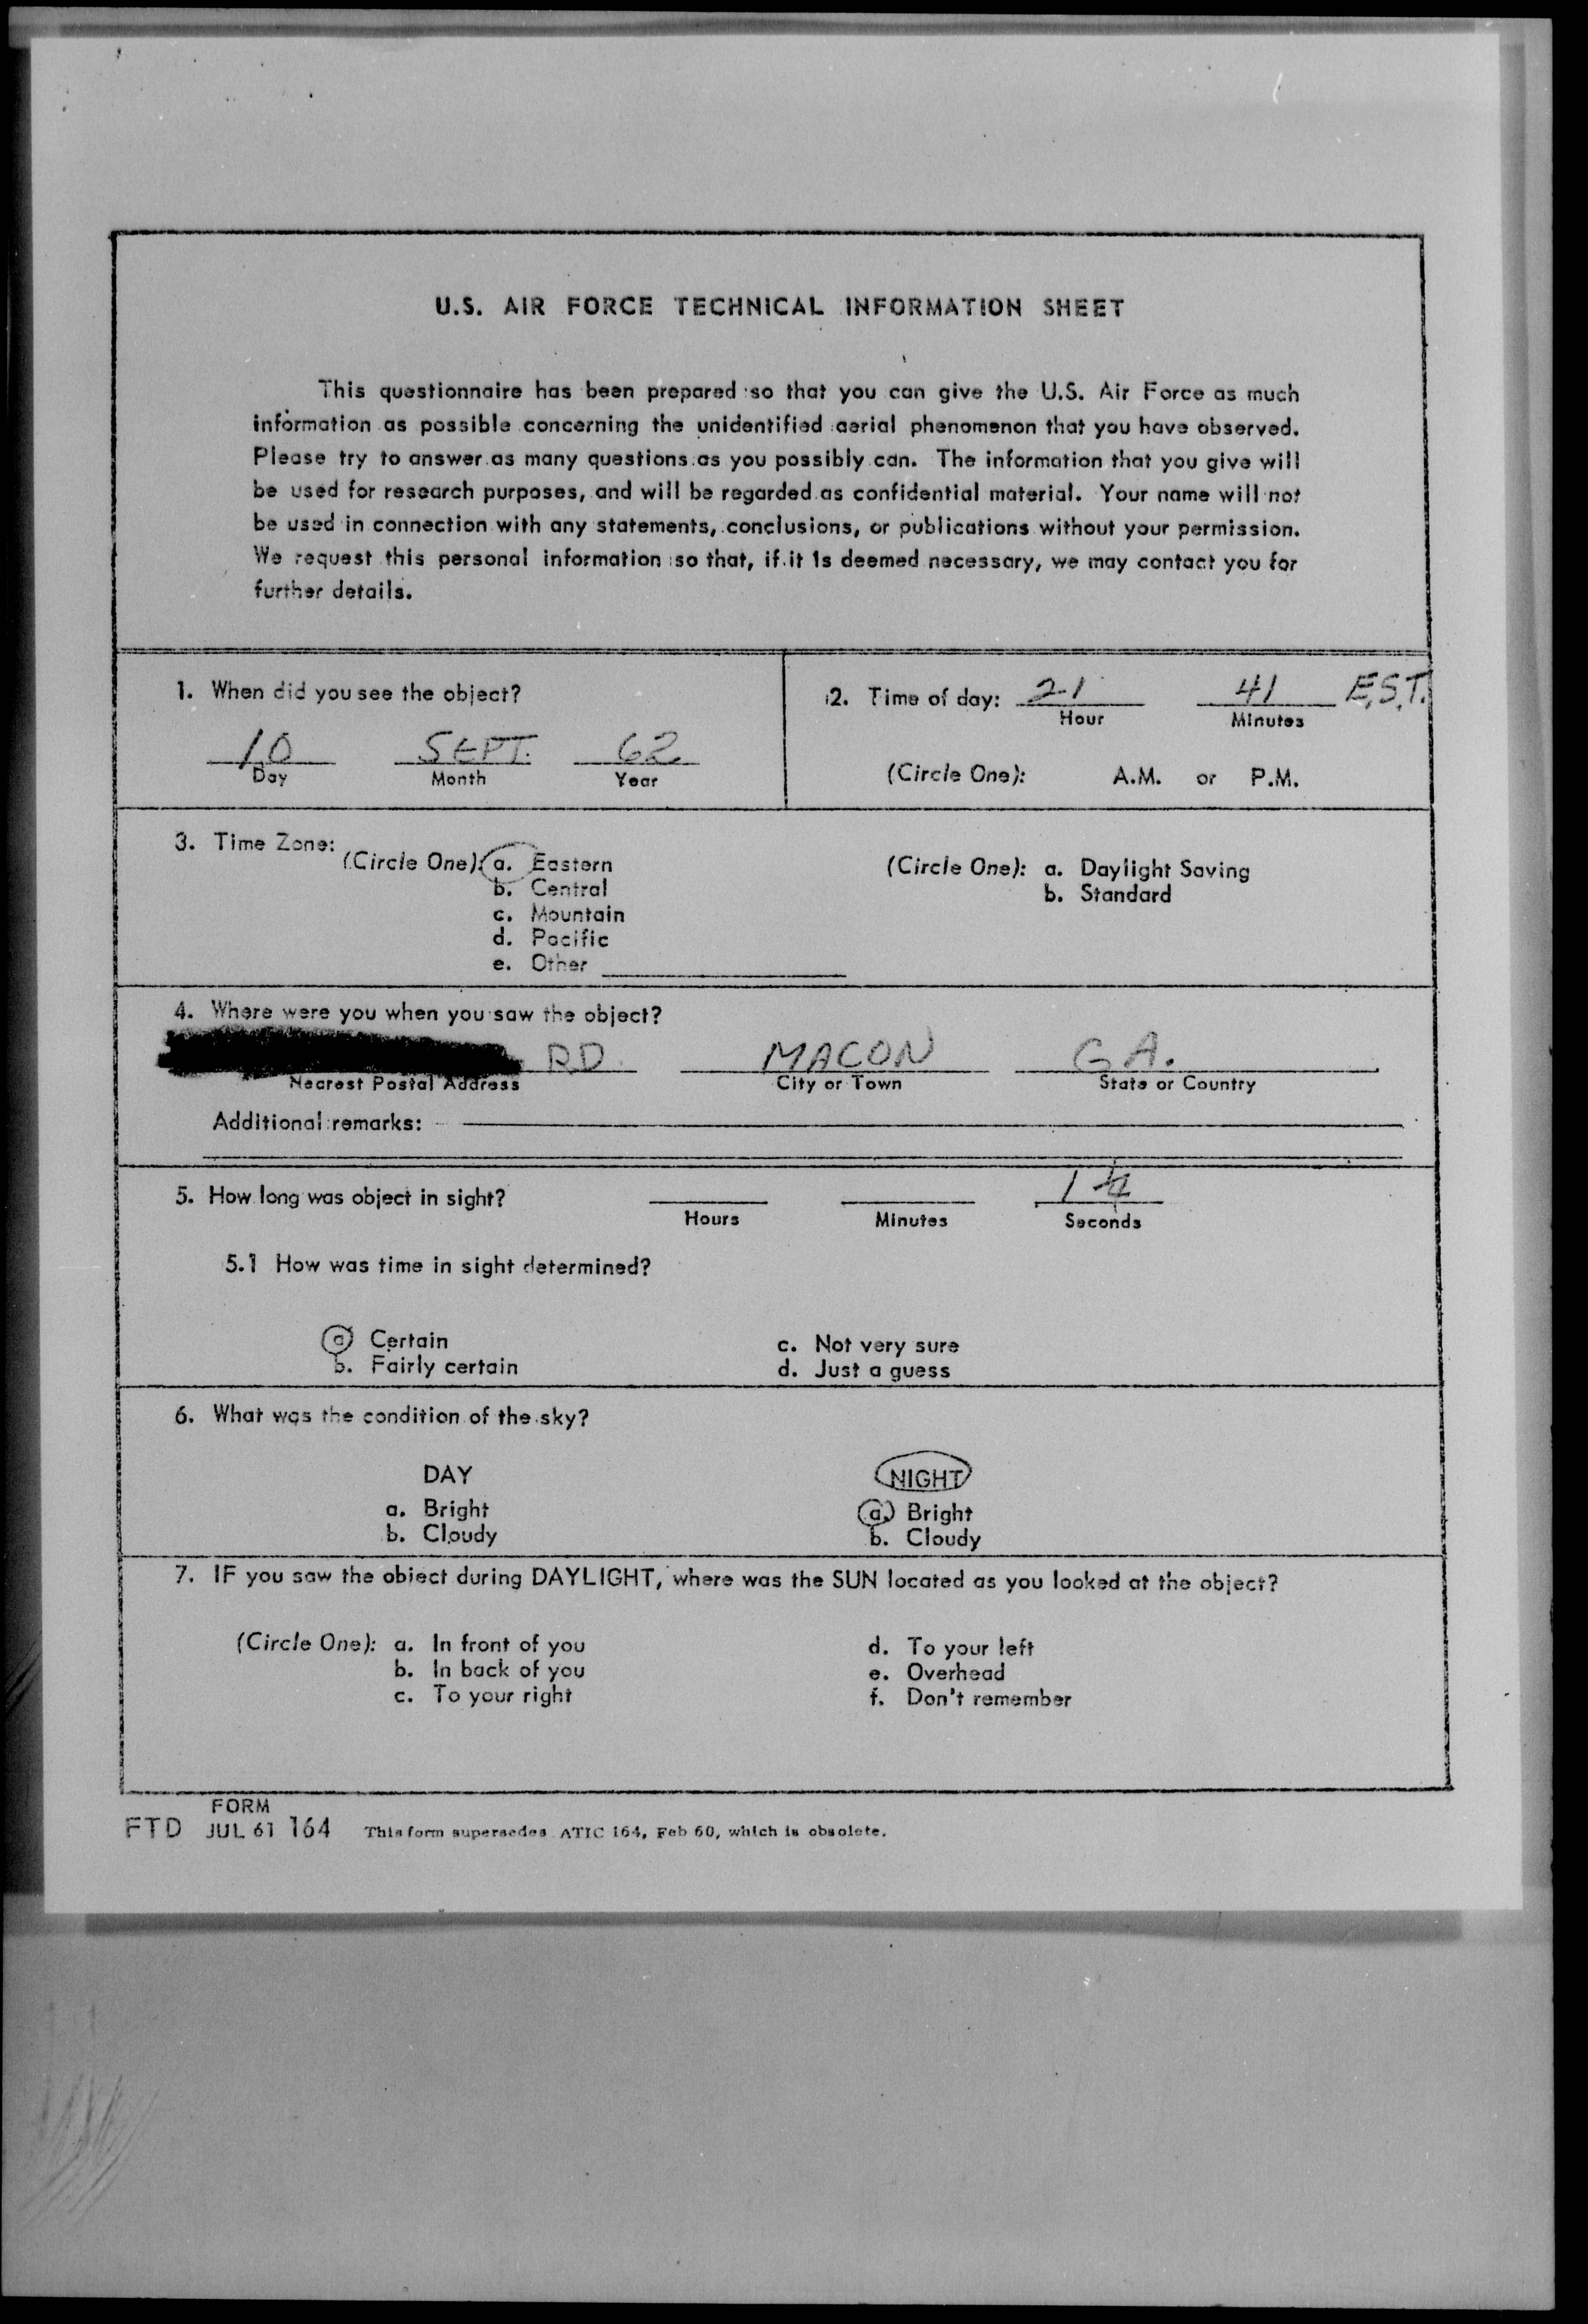 U.S. AIR FORCE TECHNICAL INFORMATION SHEET
This questionnaire has been prepared so that you can give the U.S. Air Force as much
information as possible concerning the unidentified aerial phenomenon that you have observed.
Please try to answer as many questions as you possibly can. The information that you give will
be used for research purposes, and will be regarded as confidential material. Your name will not
be used in connection with any statements, conclusions, or publications without your permission.
We request this personal information so that, if it is deemed necessary, we may contact you for
further details.
1. When did you see the object?
10 SEPT. 62
Day Month Year
2. Time of day: 21 41 E.S.T.
Hour Minutes
(Circle One): A.M. or P.M.
3. Time Zone:
(Circle One): a. Eastern
b. Central
c. Mountain
d. Pacific
e. Other
(Circle One): a. Daylight Saving
b. Standard
4. Where were you when you saw the object?
RD. MACON GA.
Nearest Postal Address City or Town State or Country
Additional remarks:
5. How long was object in sight? 1
Hours Minutes Seconds
5.1 How was time in sight determined?
a Certain
b. Fairly certain
c. Not very sure
d. Just a guess
6. What was the condition of the sky?
DAY
a. Bright
b. Cloudy
NIGHT
a. Bright
b. Cloudy
7. IF you saw the object during DAYLIGHT, where was the SUN located as you looked at the object?
(Circle One): a. In front of you
b. In back of you
c. To your right
d. To your left
e. Overhead
f. Don't remember
FORM
FTD JUL 61 164 This form supersedes ATIC 164, Feb 60, which is obsolete.